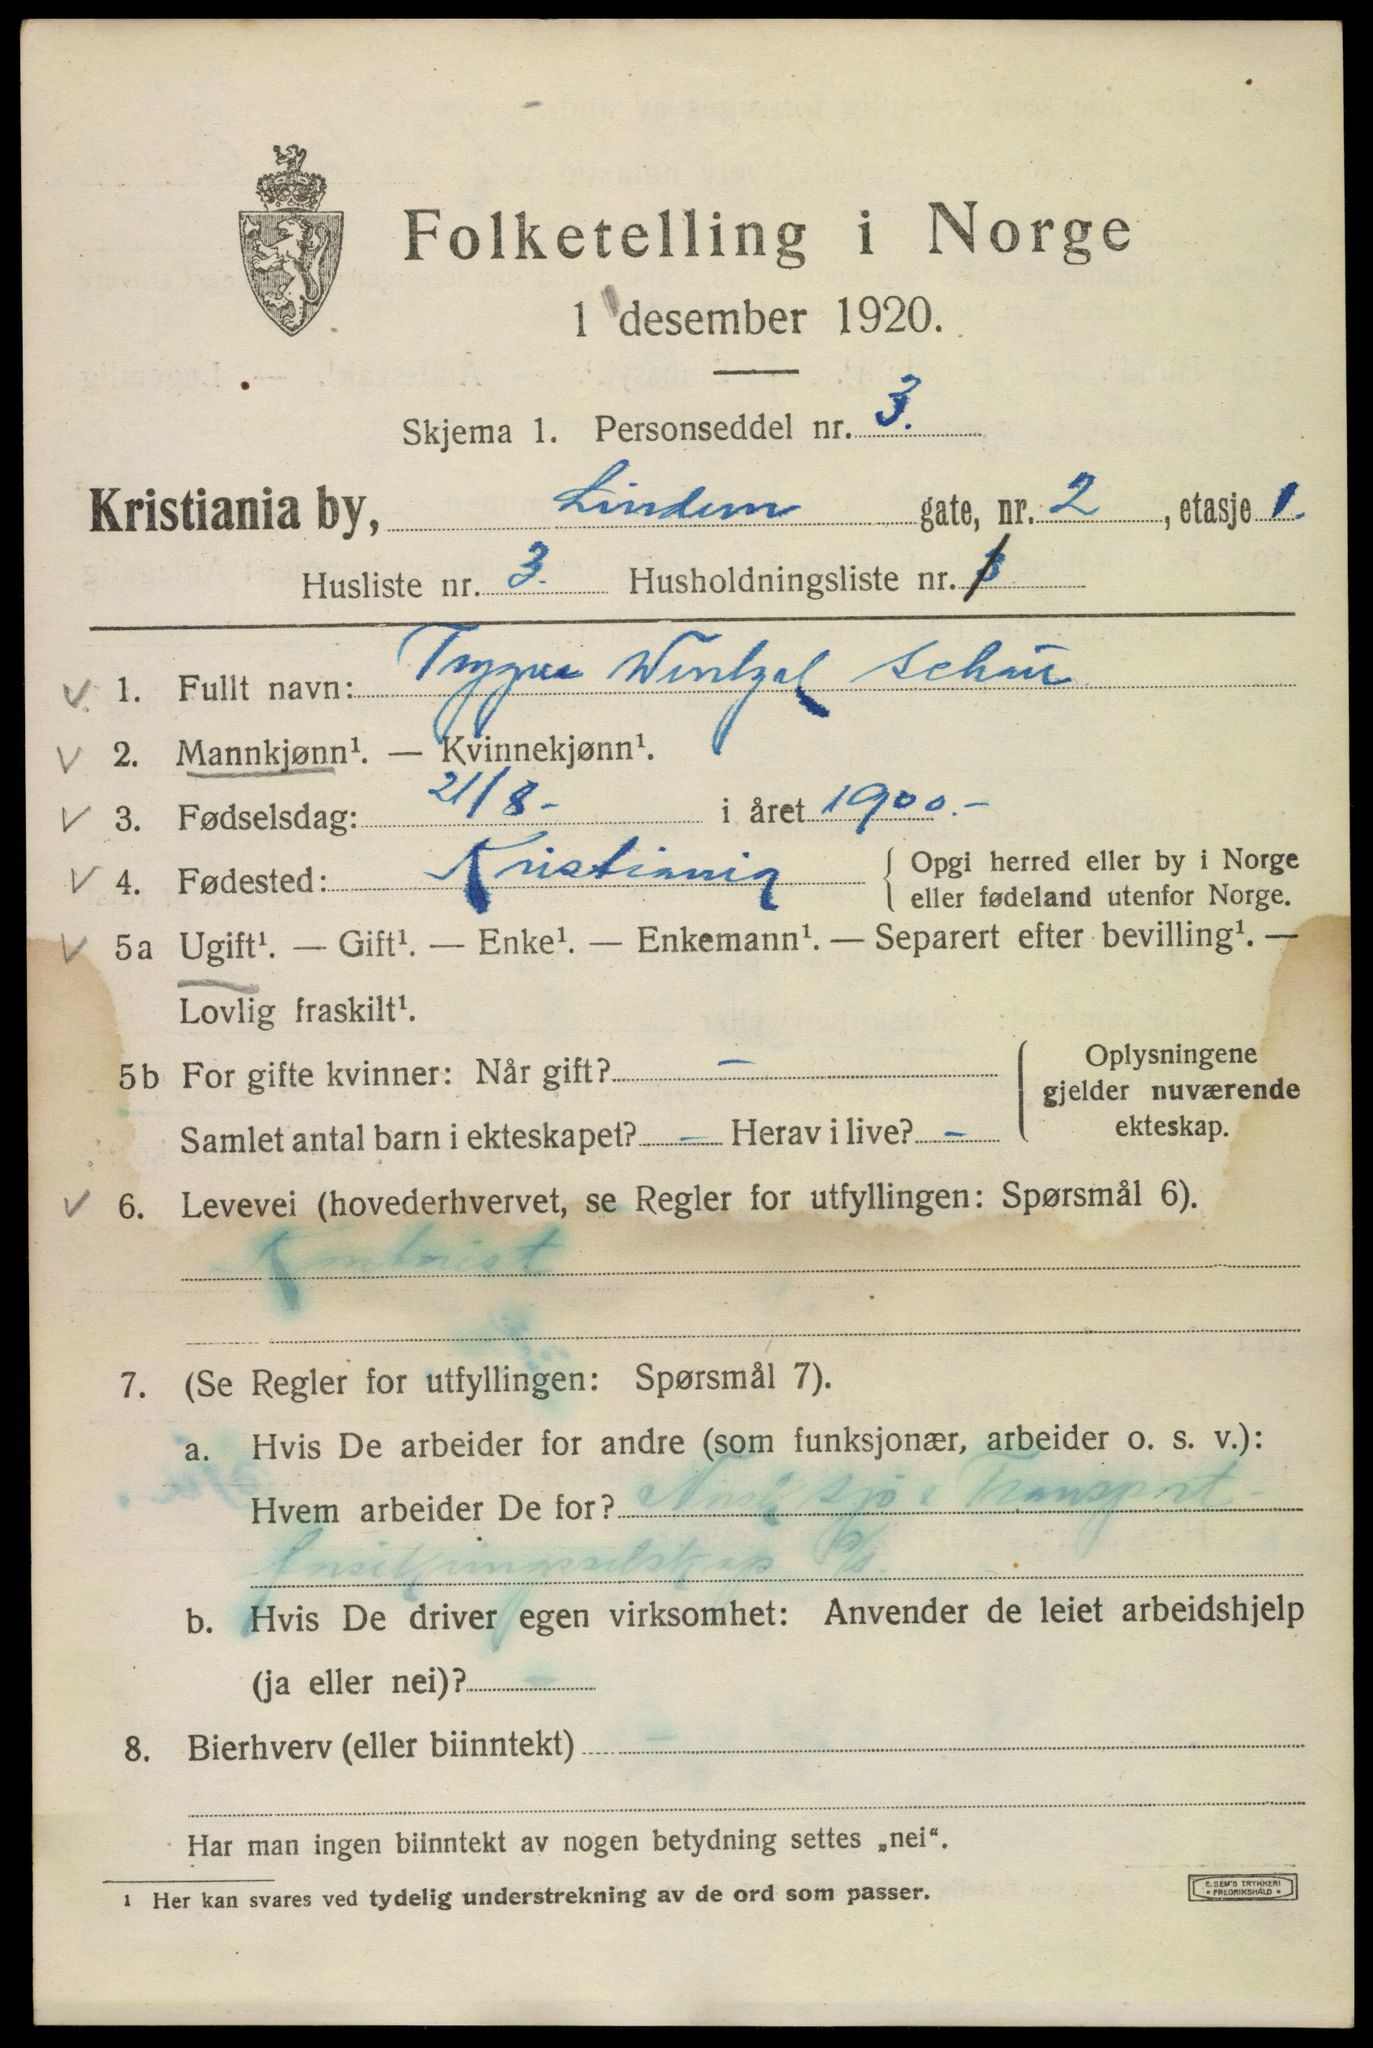 Folketelling i Norge
1 desember 1920.
Skjema 1. Personseddel nr. 3.
Kristiania by, Lindem gate, nr. 2, etasje 1.
Husliste nr. 3. Husholdningsliste nr.
1. Fullt navn: Trygve Wentzel
2. Mannkjønn¹. — Kvinnekjønn¹.
3. Fødselsdag: 21/8- i året 1900.-
4. Fødested: Kristiania { Opgi herred eller by i Norge
eller fødeland utenfor Norge.
5a Ugift¹. — Gift¹. — Enke¹. — Enkemann¹. — Separert efter bevilling¹. —
Lovlig fraskilt¹.
5b For gifte kvinner: Når gift? — { Oplysningene
gjelder nuværende
ekteskap.
Samlet antal barn i ekteskapet? — Herav i live? —
6. Levevei (hovederhvervet, se Regler for utfyllingen: Spørsmål 6).
Kontorist
7. (Se Regler for utfyllingen: Spørsmål 7).
a. Hvis De arbeider for andre (som funksjonær, arbeider o. s. v.):
Hvem arbeider De for? Norsk Sjø & Transport-
A/S.
b. Hvis De driver egen virksomhet: Anvender de leiet arbeidshjelp
(ja eller nei)? -
8. Bierhverv (eller biinntekt) -
Har man ingen biinntekt av nogen betydning settes „nei“.
1 Her kan svares ved tydelig understrekning av de ord som passer.
E. SEM'S TRYKKERI
• FREDRIKSHALD •